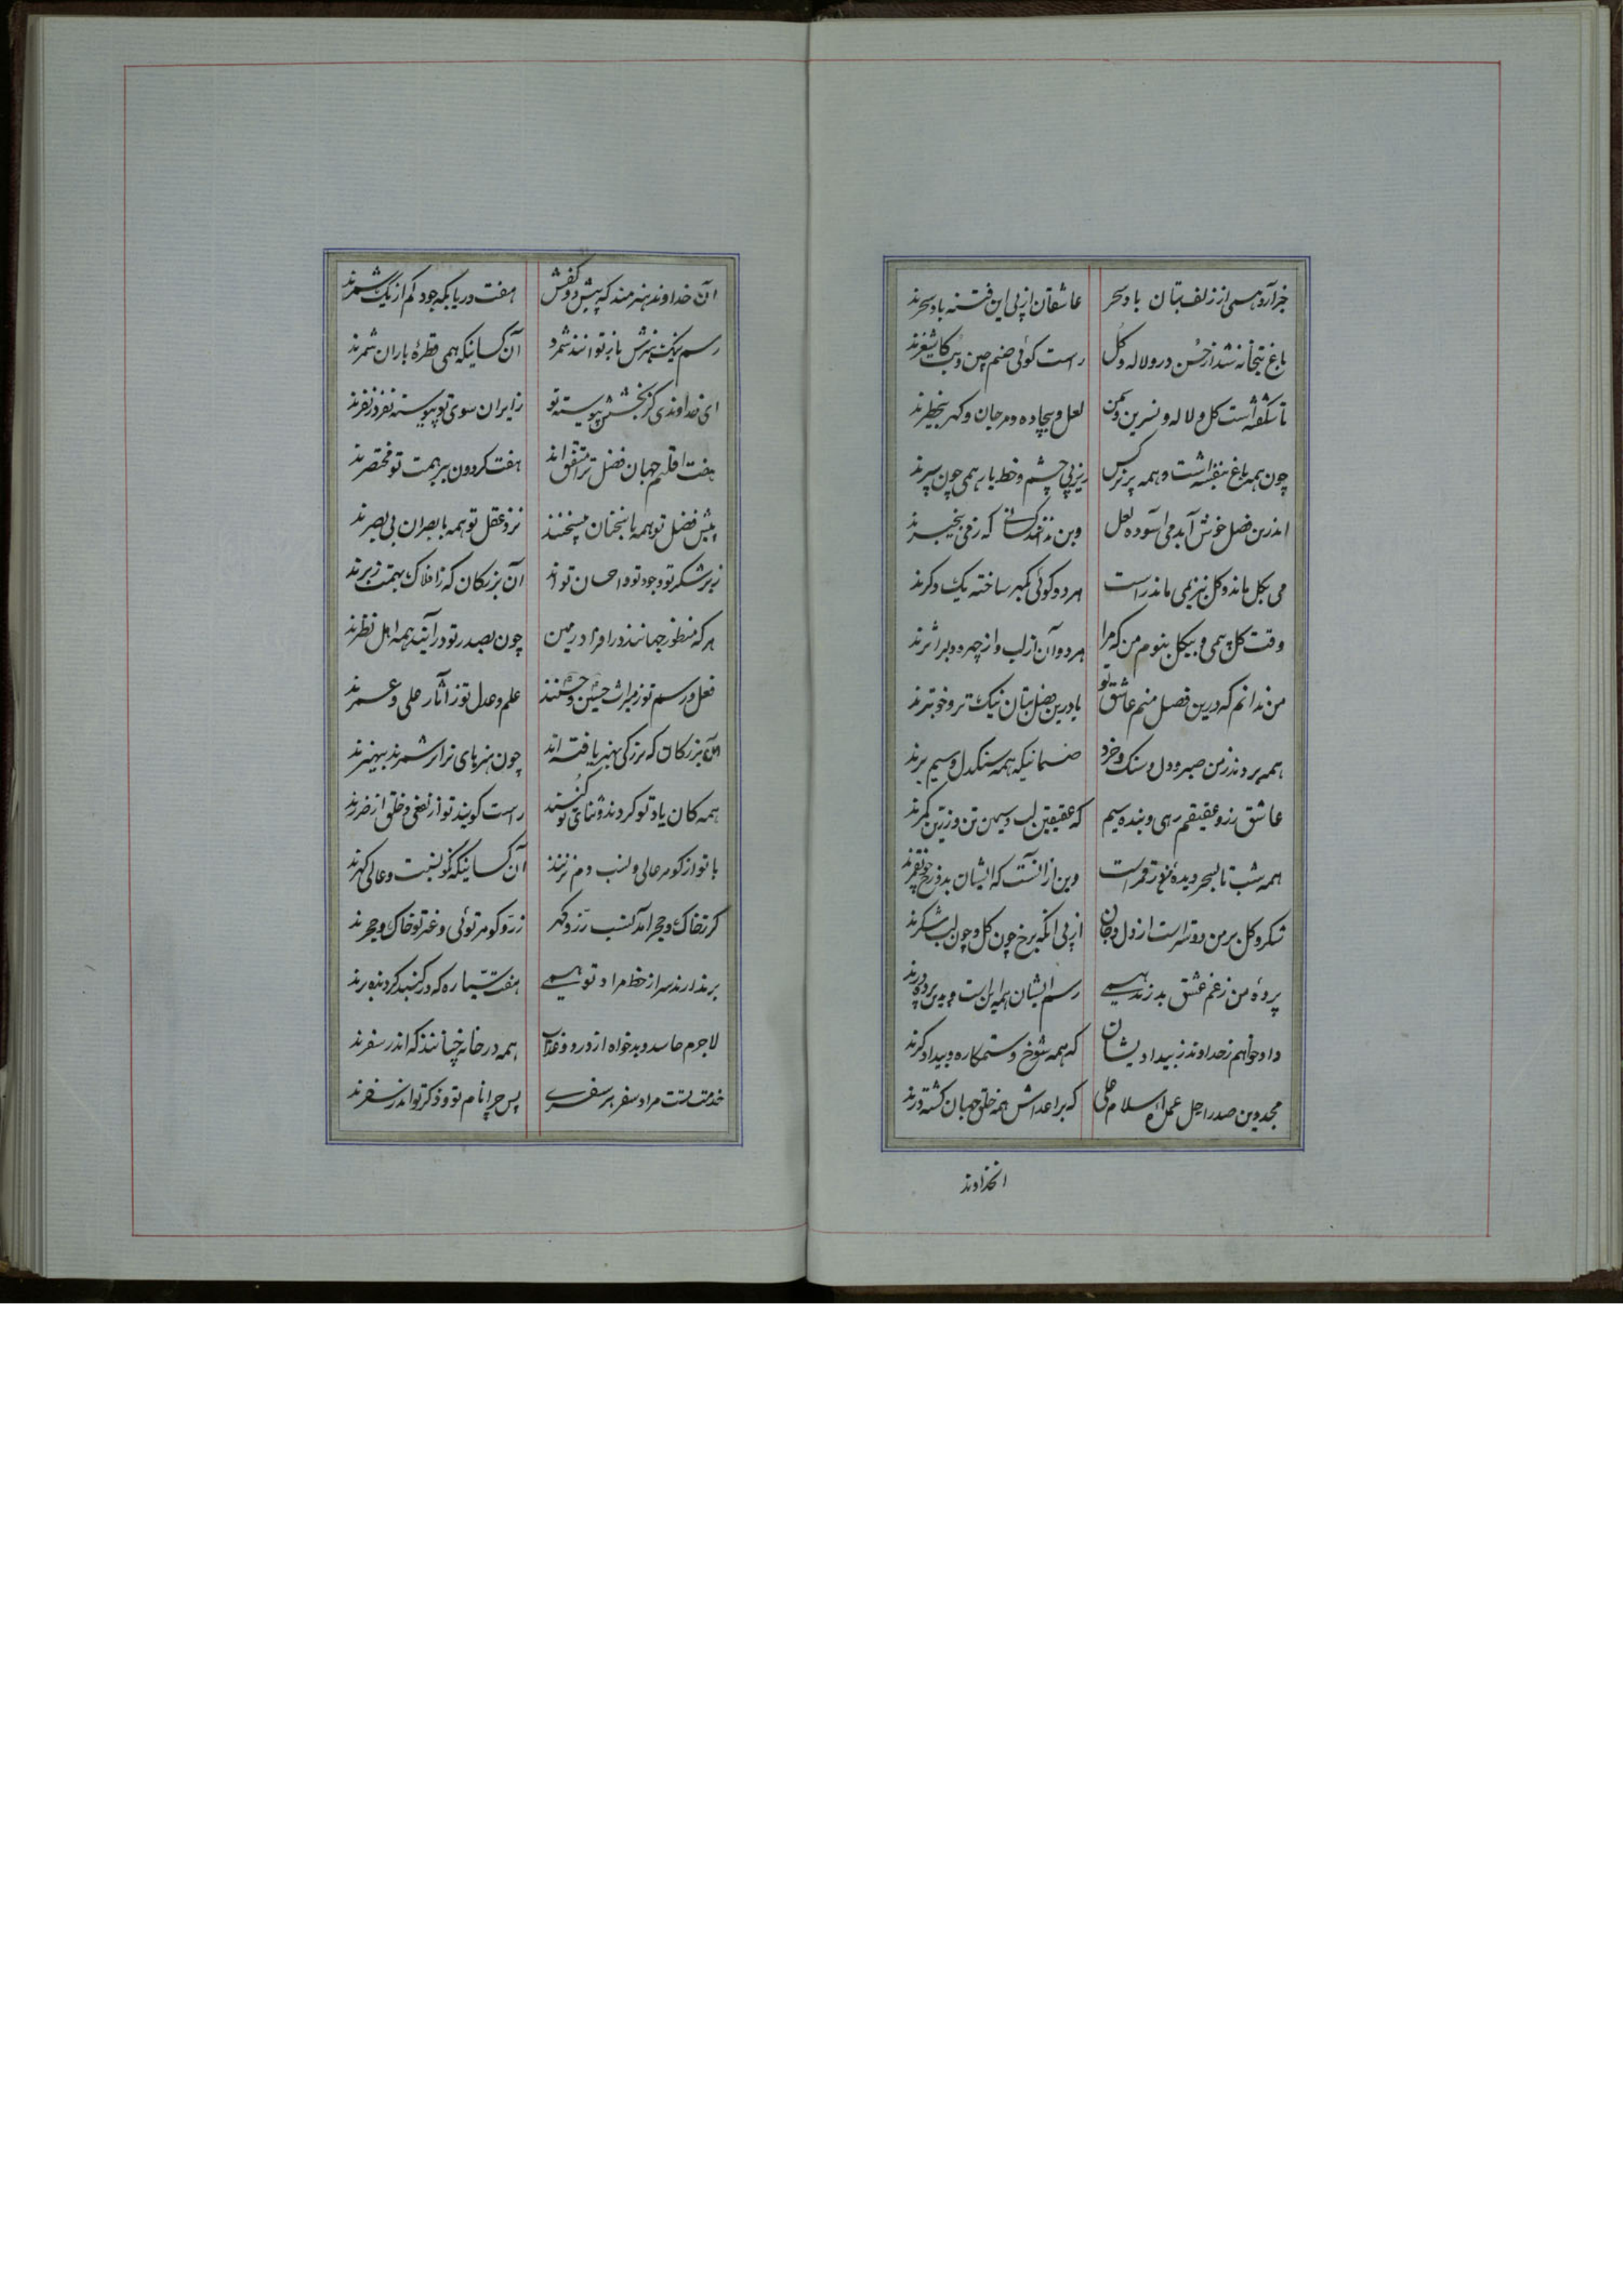 خبر آرد همی از زلف بتان باد سحر عاشقان از پی این فتنه باد سحرند
باغ بتخانه شد از حسن درو لاله و گل راست گوئی صنم چین و بت کاشغرند
تا شکفته است گل و لاله و نسرین و سمن لعل و بیجاده و مرجان و گهر بیخطرند
چون همه باغ بنفشه است و همه پر نرگس زیر پی چشم و خط یار همی چون سپرند
اندرین فصل خوش آید می آسوده لعل وین ندانند کسانی که ز می بیخبرند
می بگل ماند و گل نیز بمی ماند راست هر دو گوئی بگهر ساخته یک دگرند
وقت گل بی می و بیگل بنوم من که مرا هر دو آن از لب و از چهره دلبر اثرند
من ندانم که درین فصل منم عاشق تر یا درین فصل بتان نیک تر و خوبترند
همه بردند ز من صبر و دل و سنگ و خرد صنمانیکه همه سنگدل و سیم برند
عاشق زر و عقیقم رهی و بنده سیم که عقیقین لب و سیمین تن و زرین کمرند
همه شب تا بسحر دیده من زر قمر است وین از آنست که ایشان بدو رخ چون قمرند
شکر و گل بر من دوستر است از دل و جان از پی آنکه برخ چون گل و چون لب شکرند
پرده من ز غم عشق بدرند همی رسم ایشان همه این است و بدین پرده درند
داد خواهم ز خداوند ز بیداد یشان که همه شوخ و ستمکاره و بیدادگرند
مجد دین صدر اجل عمده اسلام علی که بر اعداش همه خلق جهان کشته درند
انخداوند
آن خداوند هنرمند که پیش دو کفش هفت دریا بگه جود کم از یک شمرند
رسم نیک و هنرش باز توانند شمرد آن کسانیکه همی قطرهٔ باران شمرند
ای خداوندی کز بخشش پیوسته تو زایران سوی تو پیوسته نفر در نفرند
هفت اقلیم جهان فضل ترا متفق اند هفت گردون ببر همت تو مختصرند
پیش فضل تو همه با سخنان بیسخنند نزد عقل تو همه با بصران بی بصرند
زیر شکر تو وجود تو و احسان تواند آن بزرگان که ز افلاک بهمت زبرند
هر که منظور جهانند در افراد زمین چون بصدر تو درآیند همه اهل نظرند
فعل و رسم تو ز میراث حسین و حسنند علم و عدل تو ز آثار علی و عمرند
آن بزرگان که بزرگی بهنر یافته اند چون هنرهای ترا بر شمرند بیهنرند
همه کان یاد تو کردند و ثنای تو کنند راست گویند تو از نفعی و خلق از ضررند
با تو از گوهر عالی و نسب دم نزنند آن کسانیکه نکو نسبت و عالی گهرند
گر ز خاک و حجر آمد بنسب زر و گهر زر و گوهر توئی و غیر تو خاک و حجرند
بر ندارند سر از خط مراد تو همی هفت سیاره که در گنبد گردنده رند
لاجرم حاسد و بدخواه از درد و عذاب همه در خانه چنانند که اندر سفرند
خدمتت هست مراد سفر هر سفری پس چرا نام تو و ذکر تو اندر سفرند